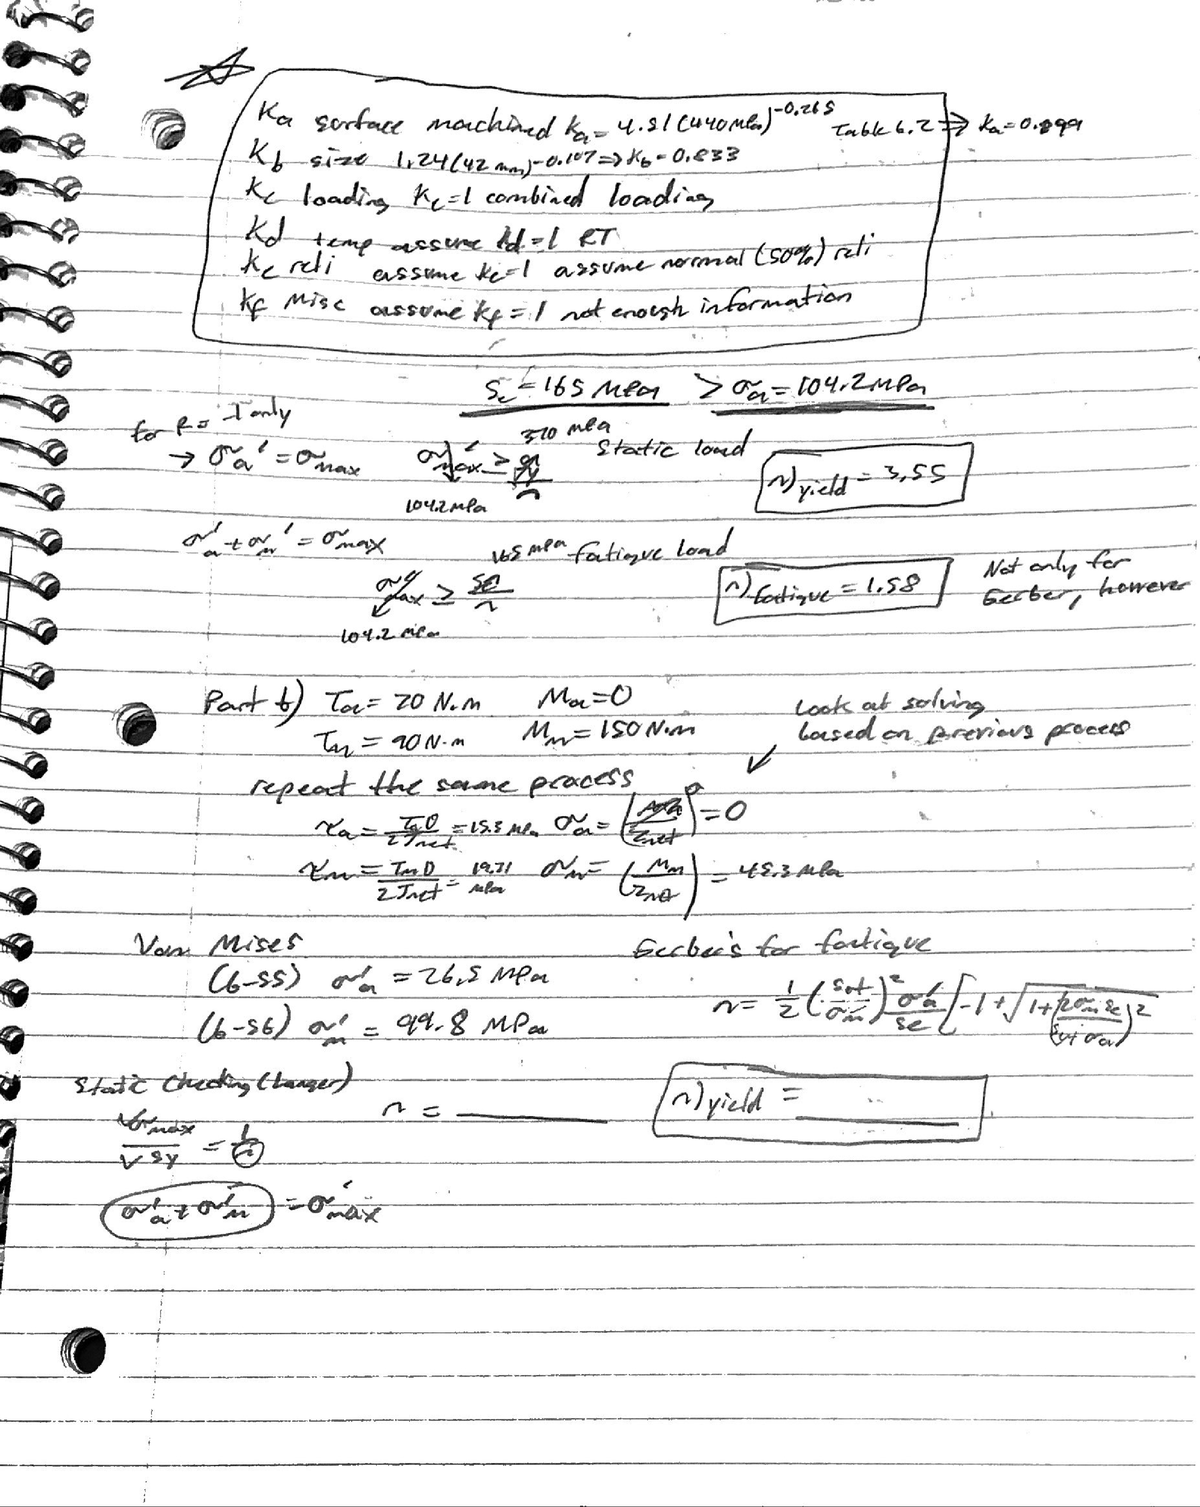 Ka surface machined ka = 4.51(440MPa)^-0.265 Table 6.2 => Ka=0.899
Kb size 1.24(42 mm)^-0.107 => Kb=0.833
Kc loading Kc=1 combined loading
Kd temp assume kd=1 RT
Ke reli assume Ke=1 assume normal (50%) reli
Kf Misc assume Kf=1 not enough information
Se = 165 MPa > σa = 104.2 MPa
for R = -1 only
→ σa' = σmax
370 MPa
σmax' ≥ Sy/n Static load
104.2 MPa
n)yield = 3.55
σa' + σm' = σmax
165 MPa Fatigue load
σmax ≥ Se/n
104.2 MPa
n)fatigue = 1.58
Not only for
Gerber, however
Part b) Ta = 20 N.m Ma=0
Tm = 90 N.m Mm=150 N.m
Look at solving
based on previous process
repeat the same process
τa = TaD/2Jnet = 15.3 MPa σa = ( /Znet) = 0
τm = TmD/2Jnet = 19.71 MPa σm = (Mm/Znet) = 45.3 MPa
Von Mises
(6-55) σa' = 26.5 MPa
(6-56) σm' = 99.8 MPa
Gerber's for fatigue
n = 1/2 (Sut/σm')² σa'/Se [-1 + √1+(2σm'Se/Sutσa')²
Static Checking (Langer)
√σmax/√Sy = 1/n
n = ______
n)yield = ______
σa' + σm' = σmax'